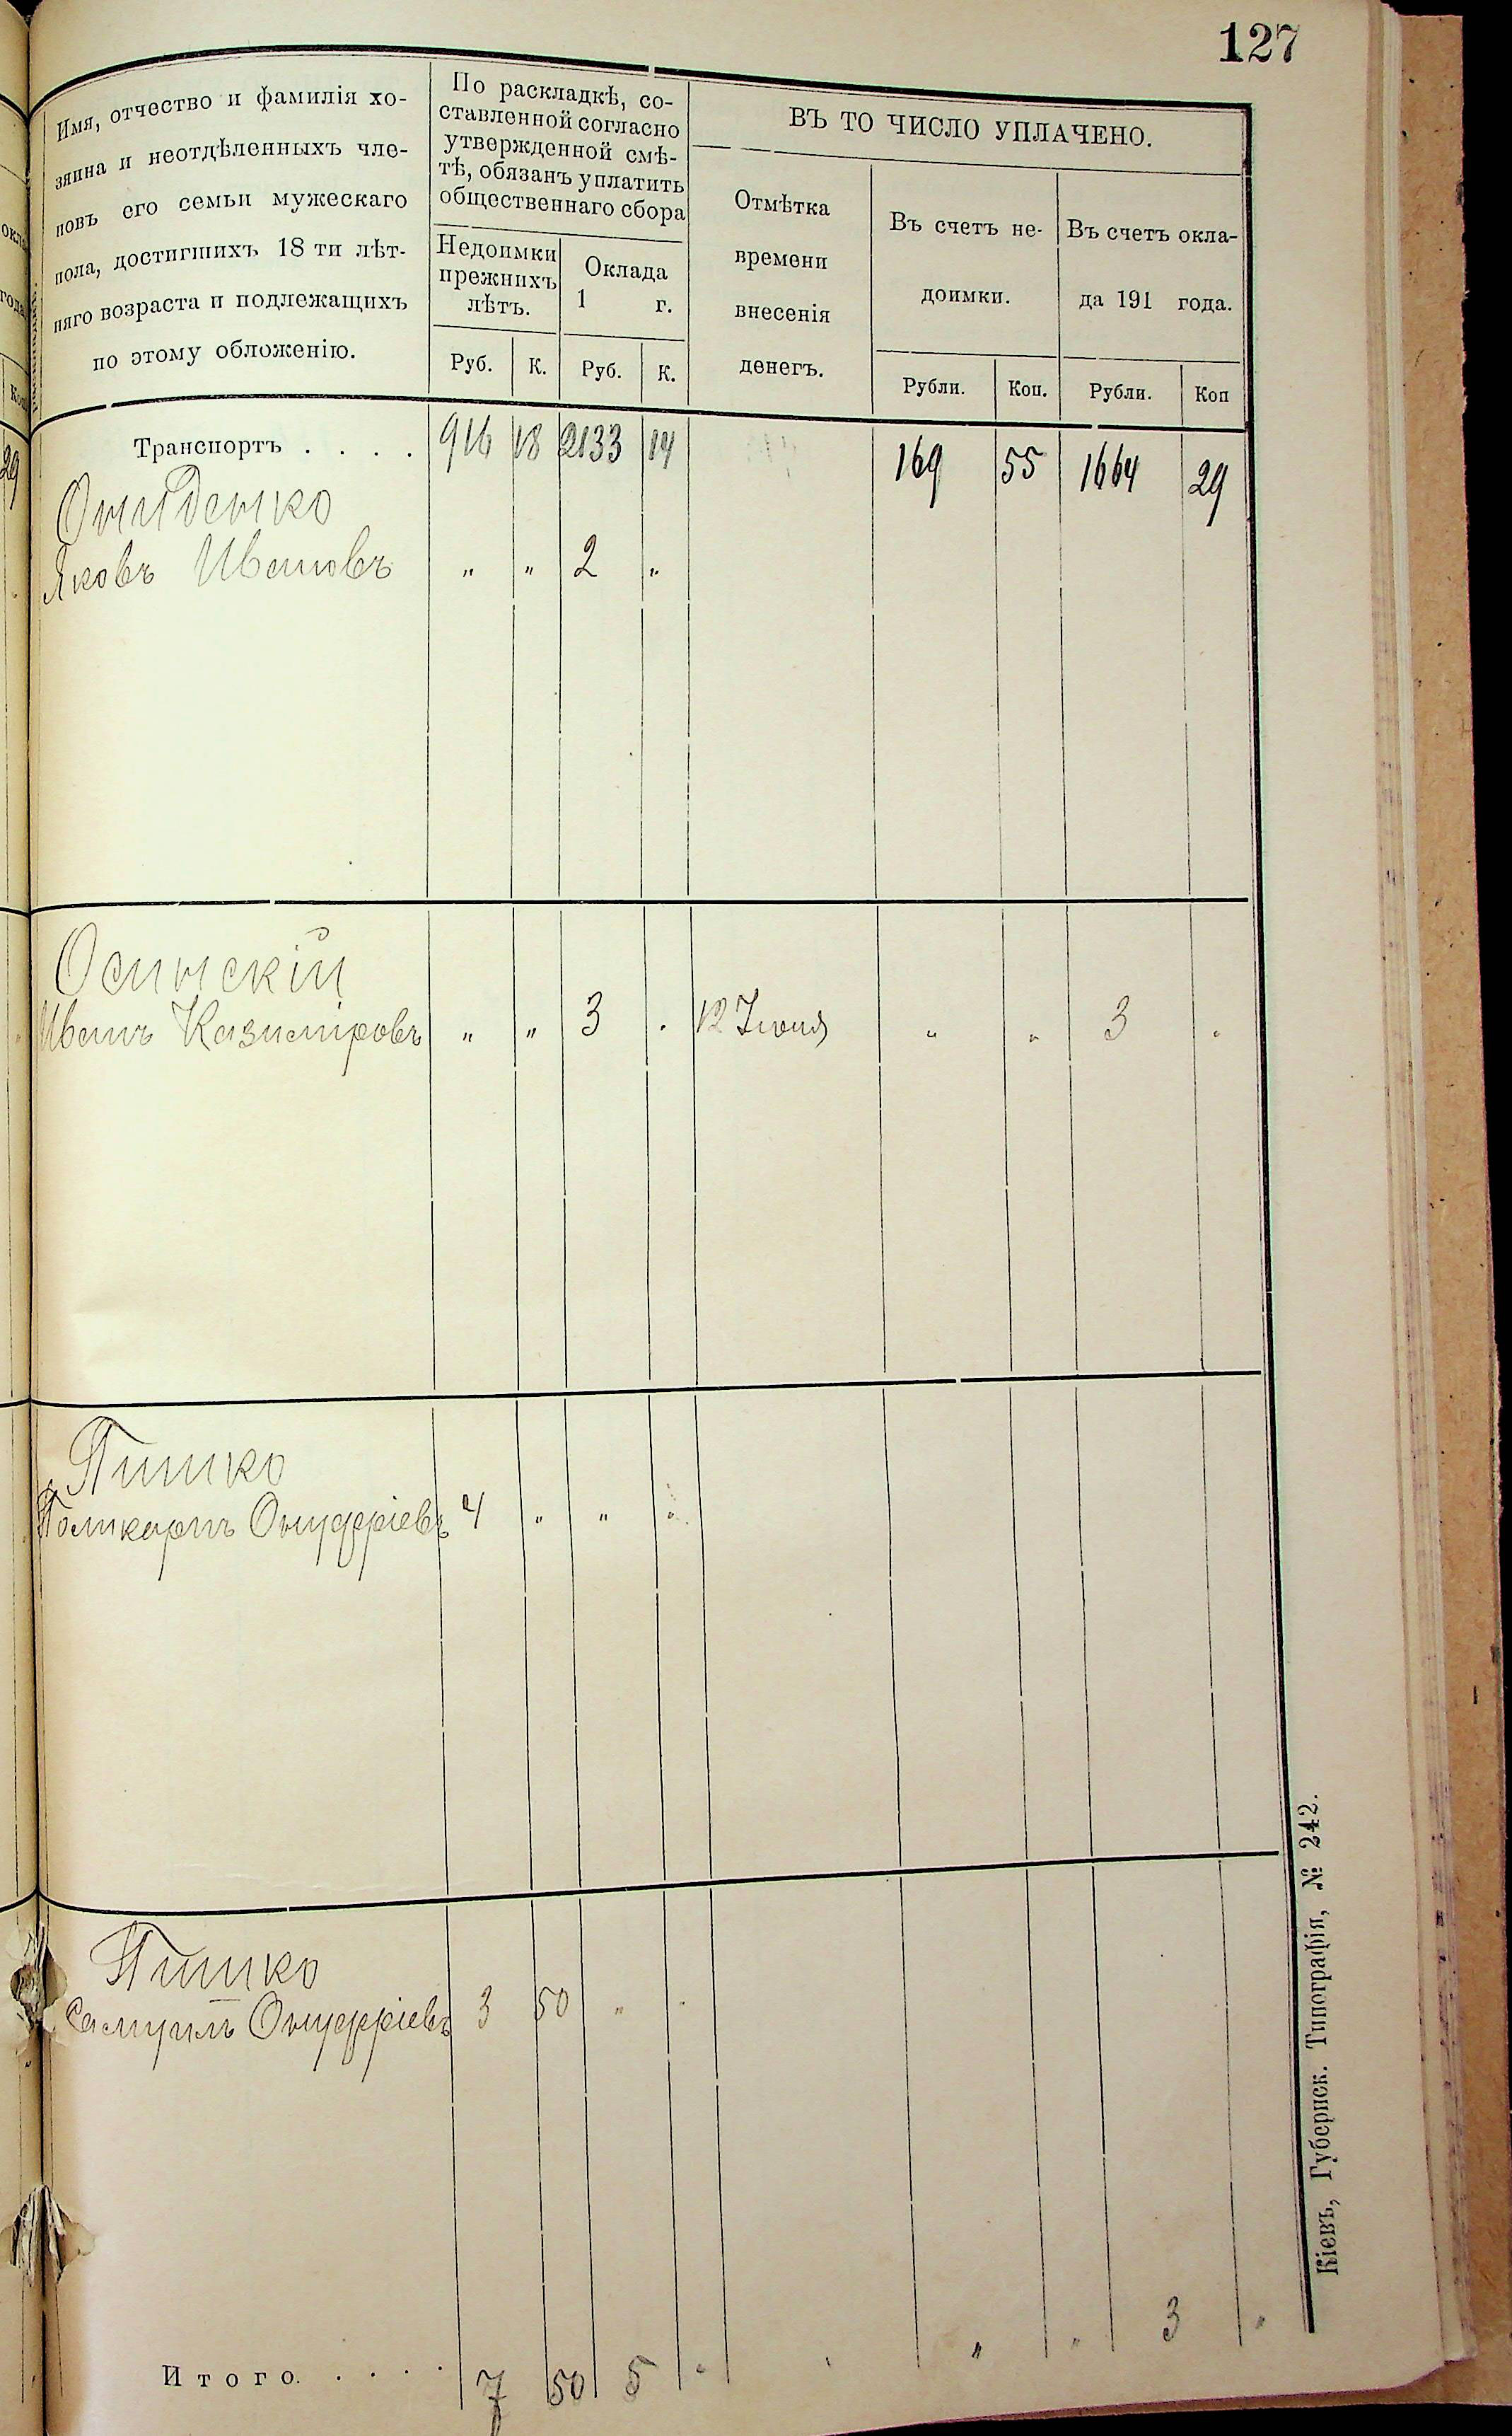 127
Имя, отчество и фамилія хо-
зяина и неотдѣленныхъ чле-
новъ его семьи мужескаго
пола, достигшихъ 18 ти лѣт-
няго возраста и подлежащихъ
по этому обложенію.
По раскладкѣ, со-
ставленной согласно
утвержденной смѣ-
тѣ, обязанъ уплатить
общественнаго сбора
Недоимки
прежнихъ
лѣтъ.
Оклада
1 г.
Руб. К. Руб. К.
ВЪ ТО ЧИСЛО УПЛАЧЕНО.
Отмѣтка
времени
внесенія
денегъ.
Въ счетъ не-
доимки.
Рубли. Коп.
Въ счетъ окла-
да 191 года.
Рубли. Коп
Транспортъ . . . . 916 18 2133 14 169 55 1664 29
Онйденко
Яковъ Ивановъ „ „ 2 „
Осинскій
Иванъ Казиміровъ „ „ 3 . 12 Іюня „ „ 3 „
Пинко
Поликарпъ Онуфріевъ 4 „ „ „
Пинко
Самуилъ Онуфріевъ 3 50 „ „
Итого. . . . . 7 50 5 „ „ „ 3 „
Кіевъ, Губернск. Типографія, № 242.